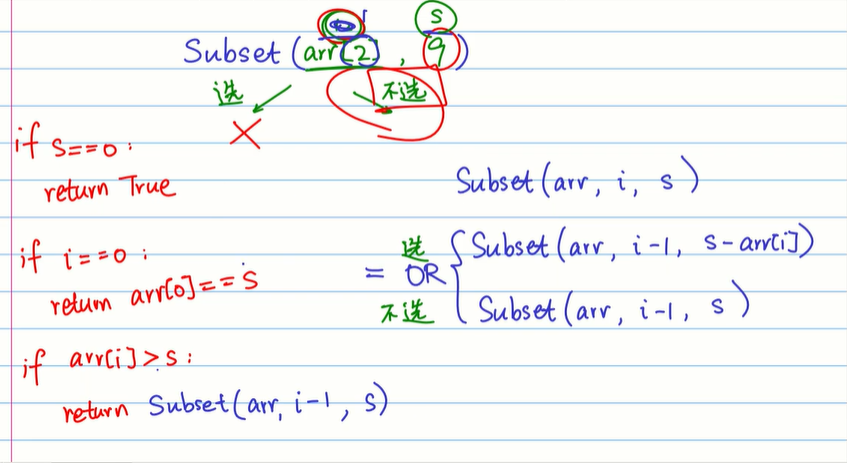 s
Subset(arr[2], 9)
选 不选
if s==0:
return True
if i==0:
return arr[0]==s
if arr[i]>s:
return Subset(arr, i-1, s)
Subset(arr, i, s)
选 Subset(arr, i-1, s-arr[i])
= OR
不选 Subset(arr, i-1, s)